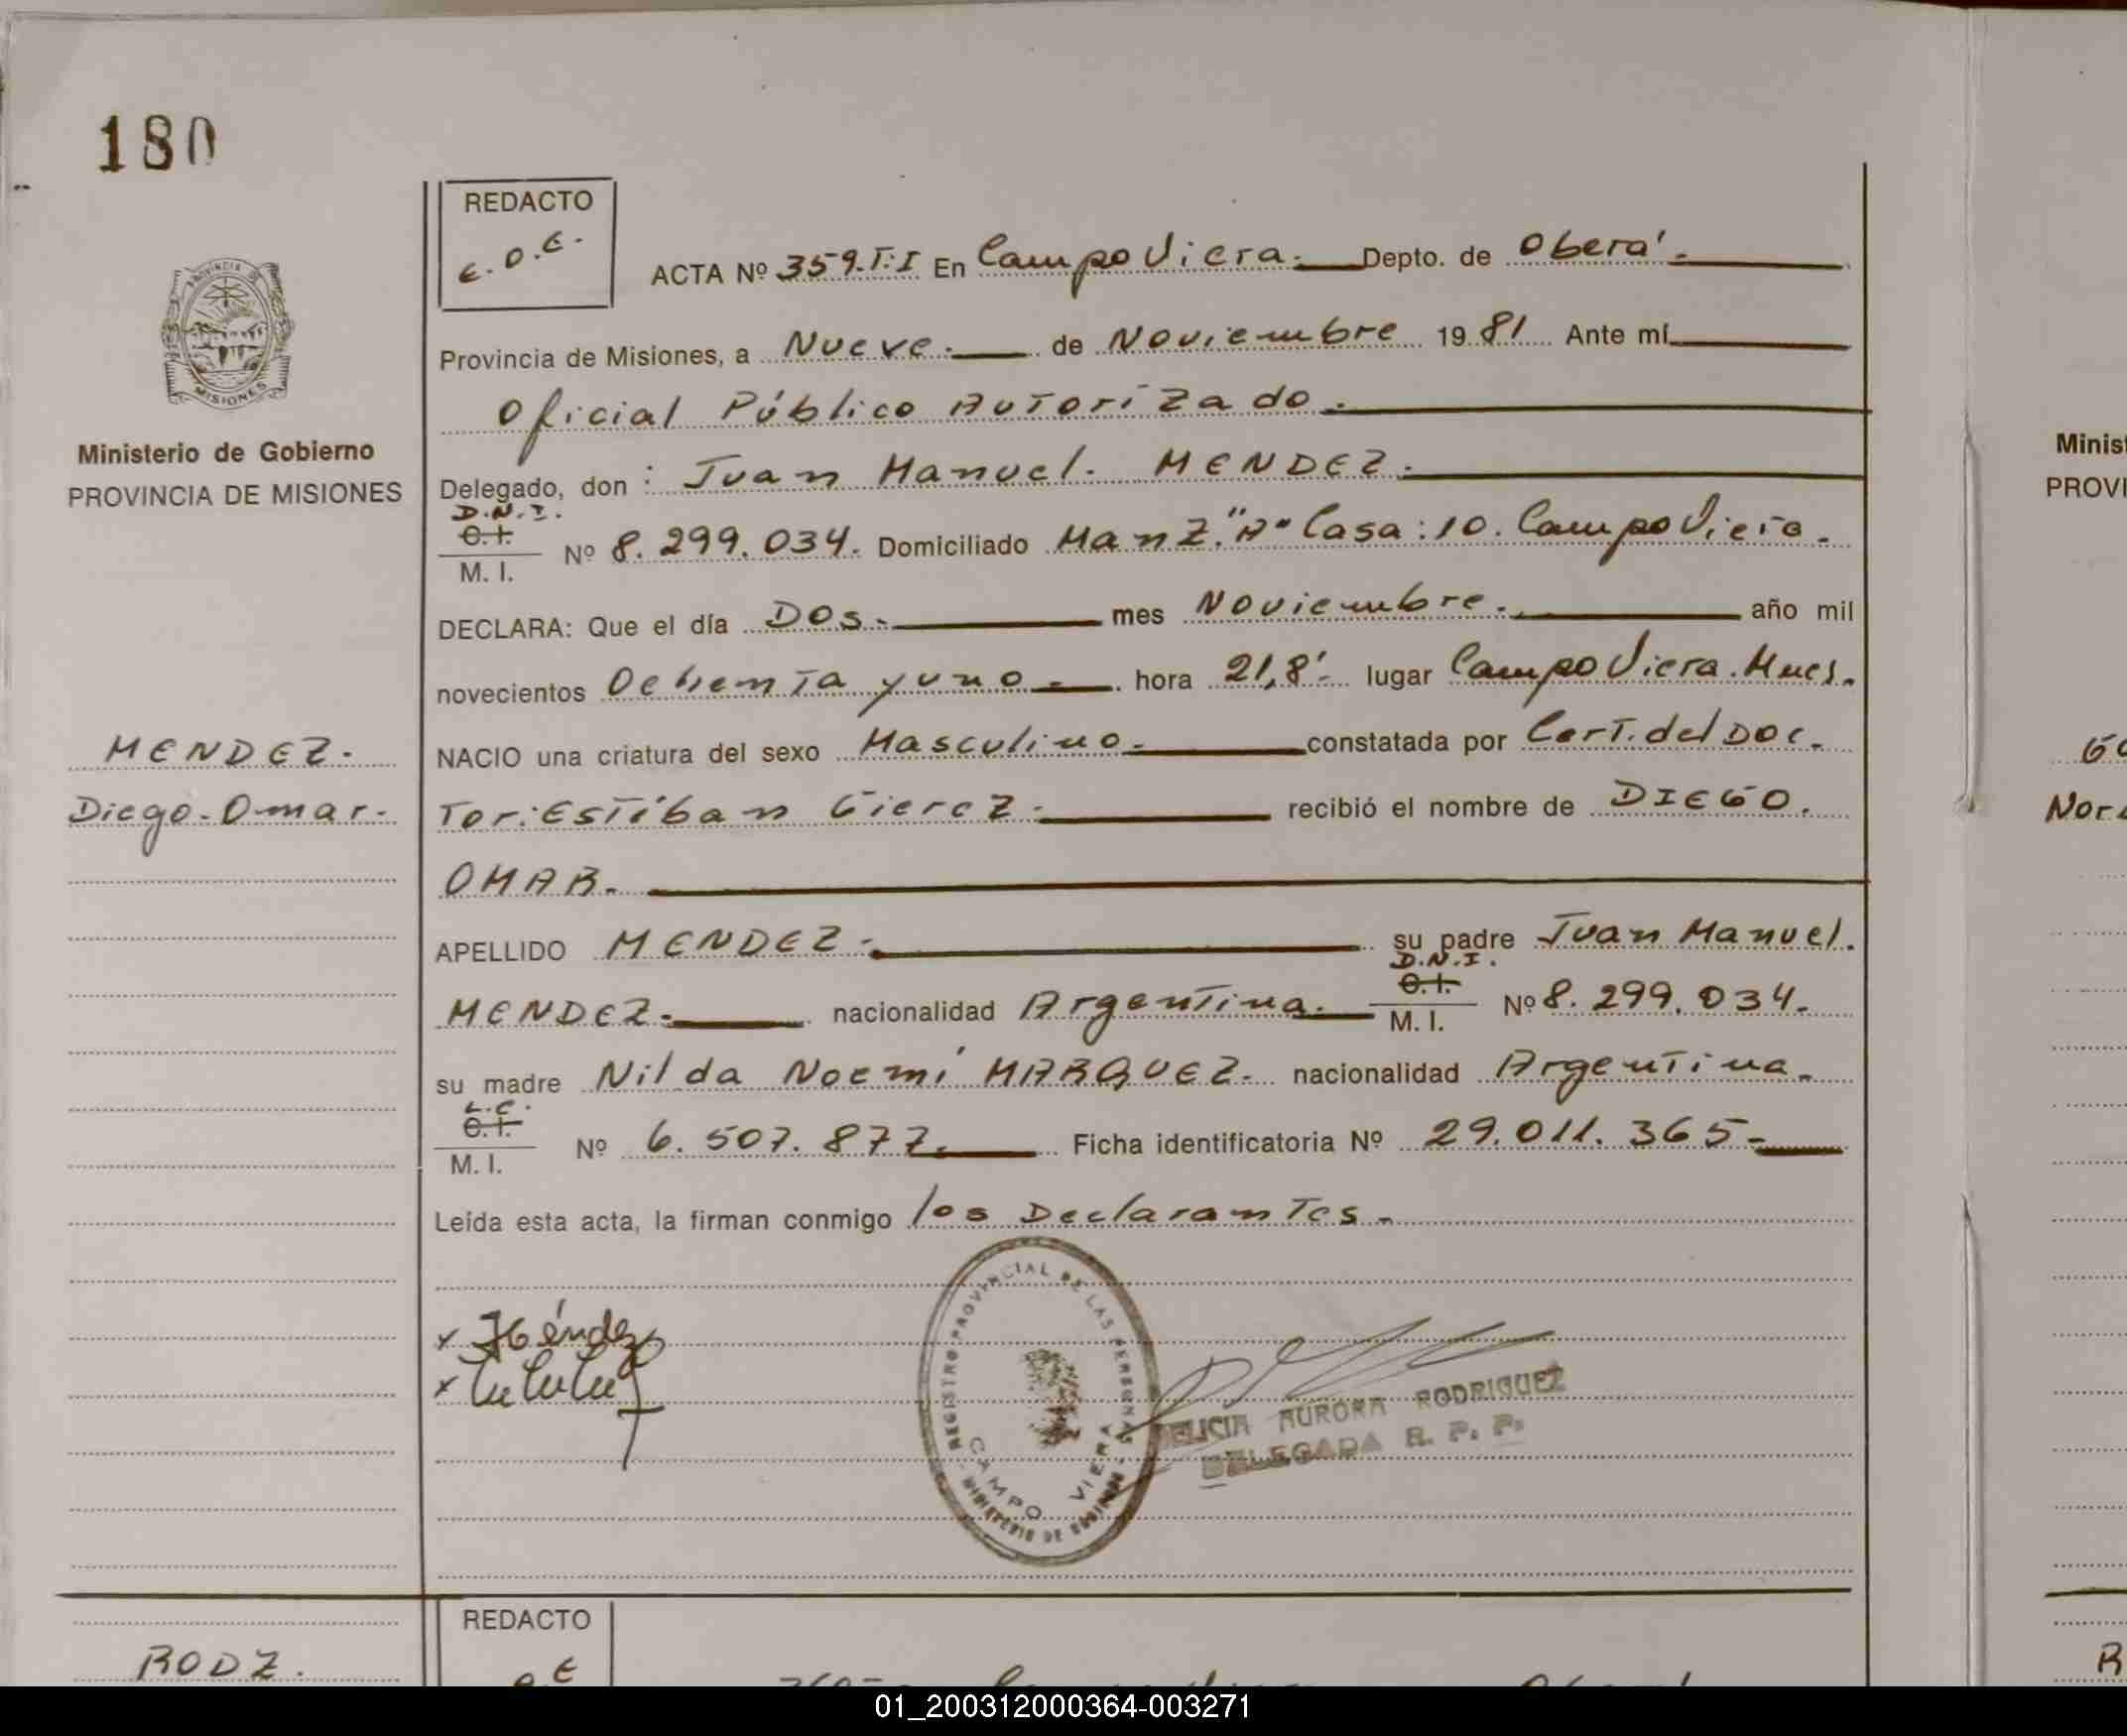 180
REDACTO
E.O.E.
ACTA Nº 359.T:I En Campo Viera. Depto. de Oberá.
PROVINCIA DE
MISIONES
Provincia de Misiones, a Nueve. de Noviembre 1981 Ante mí
Oficial Público Autorizado.
Ministerio de Gobierno
PROVINCIA DE MISIONES
Delegado, don: Juan Manuel. MENDEZ.
D.N.I.
C.I.
M. I. Nº 8.299.034. Domiciliado Manz."A" Casa:10. Campo Viera.
DECLARA: Que el día Dos. mes Noviembre. año mil
novecientos Ochenta y uno. hora 21,8'. lugar Campo Viera. Mnes.
MENDEZ.
Diego-Omar.
NACIO una criatura del sexo Masculino. constatada por Cert. del Doc.
Tor: Estiban Gierez. recibió el nombre de DIEGO.
OMAR.
APELLIDO MENDEZ. su padre Juan Manuel.
D.N.I.
C.I.
MENDEZ. nacionalidad Argentina. M. I. Nº 8.299.034.
su madre Nilda Noemí MARQUEZ. nacionalidad Argentina.
L.C.
C.I.
M. I. Nº 6.507.877. Ficha identificatoria Nº 29.011.365.
Leída esta acta, la firman conmigo los Declarantes.
x Méndez
x
REGISTRO PROVINCIAL DE LAS PERSONAS
CAMPO VIERA
MINISTERIO DE GOBIERNO
DELICIA AURORA RODRIGUEZ
DELEGADA R. P. P.
REDACTO
RODZ.
Minis
PROVI
Nor
R
01_200312000364-003271